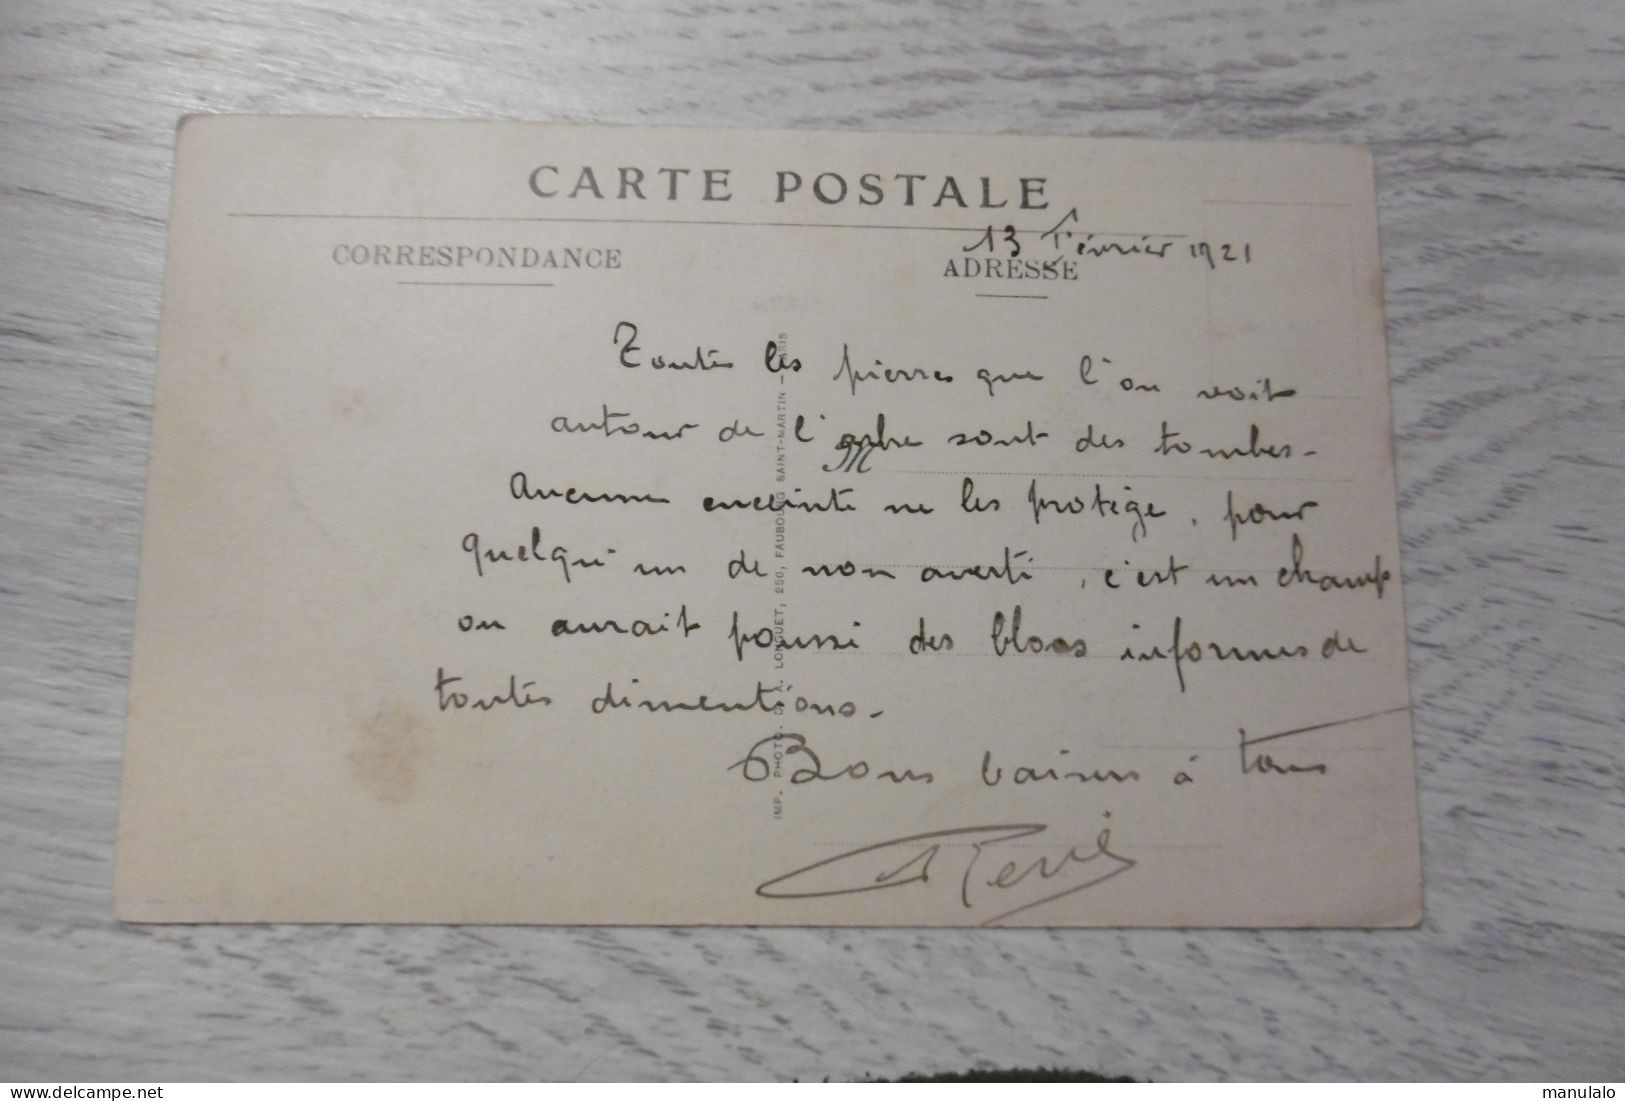 CARTE POSTALE
13 Février 1921
CORRESPONDANCE
ADRESSE
Toutes les pierres que l'on voit
autour de l'arbre sont des tombes -
Aucune enceinte ne les protège, pour
quelqu'un de non averti, c'est un champ
ou aurait poussé des blocs informes de
toutes dimentions -
Bons baisers à tous
René
IMP. PHOTO. D. A. LONGUET, 250, FAUBOURG SAINT-MARTIN - PARIS
delcampe.net
manulalo